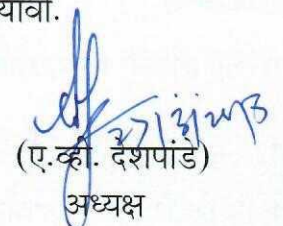 यावा.
27/3/2013
(ए.व्ही. देशपांडे)
अध्यक्ष